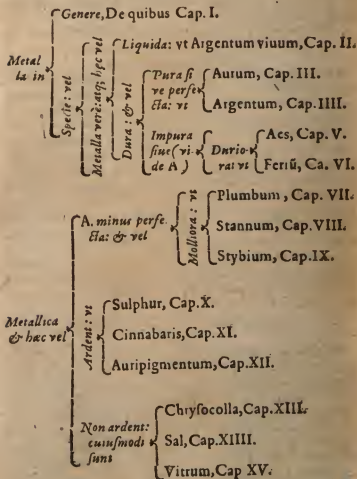 Genere, De quibus Cap. I.
Metal
la in
Specie: vel
Metalla verè: atq; hęc vel
Liquida: vt Argentum viuum, Cap. II.
Dura: & vel
Pura si
ve perfe
cta: vt
Aurum, Cap. III.
Argentum, Cap. IIII.
Impura
siue (vi-
de A)
Durio-
ra: vt
Aes, Cap. V.
Ferrū, Ca. VI.
A. minus perfe
cta: & vel
Molliora: vt
Plumbum, Cap. VII.
Stannum, Cap. VIII.
Stybium, Cap. IX.
Metallica
& hæc vel
Ardent: vt
Sulphur, Cap. X.
Cinnabaris, Cap. XI.
Auripigmentum, Cap. XII.
Non ardent:
cuiusmodi
sunt
Chryſocolla, Cap. XIII.
Sal, Cap. XIIII.
Vitrum, Cap XV.